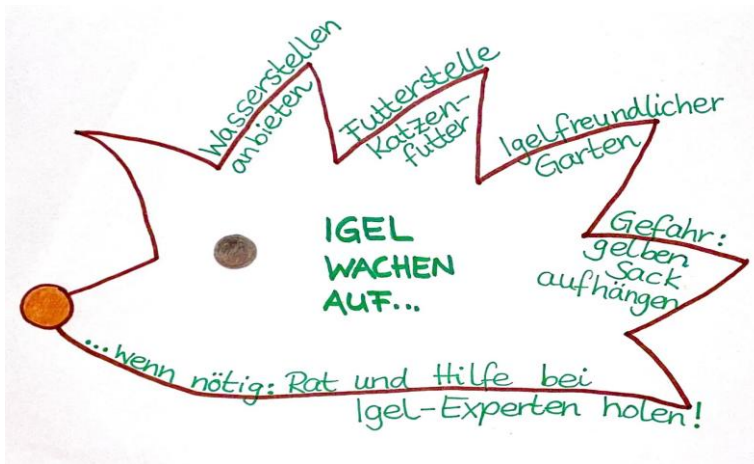 Wasserstellen
anbieten
Futterstelle
Katzen-
futter
Igelfreundlicher
Garten
Gefahr:
gelben
Sack
aufhängen
IGEL
WACHEN
AUF...
...wenn nötig: Rat und Hilfe bei
Igel-Experten holen!